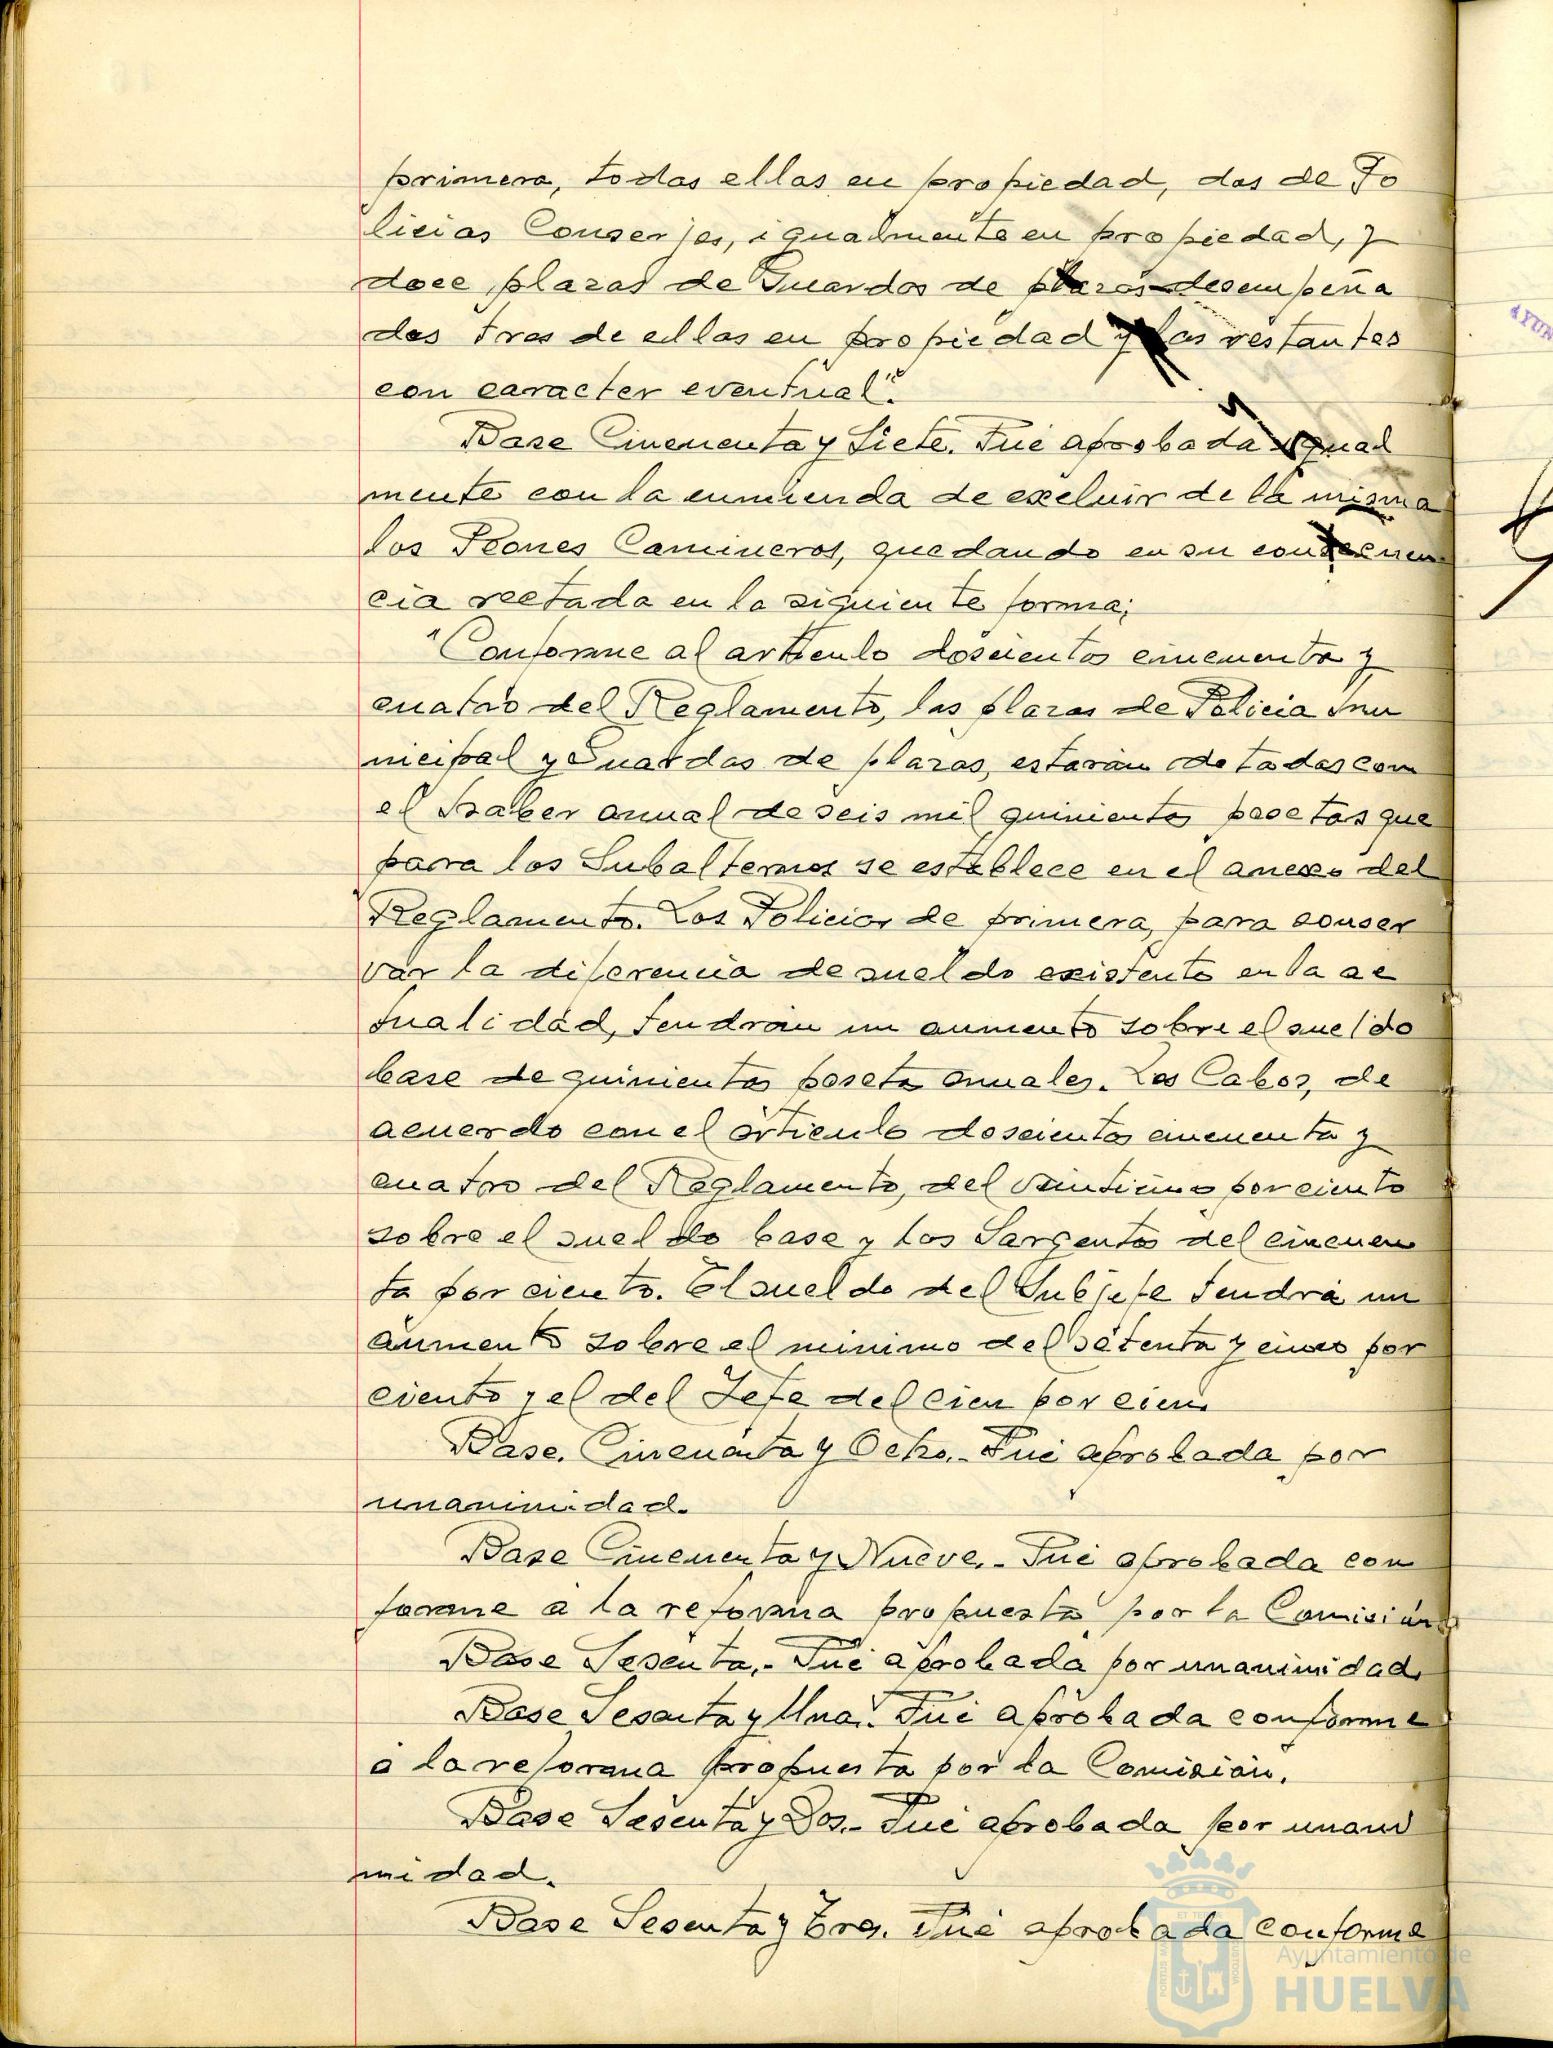 primera, todas ellas en propiedad, dos de Po
licias Conserjes, igualmente en propiedad, y
doce plazas de Guardas de plazas desempeña
das tres de ellas en propiedad y las restantes
con caracter eventual".
Base Cincuenta y Siete. Fué aprobada igual
mente con la enmienda de excluir de la misma
los Peones Camineros, quedando en su consecuen
cia rectada en la siguiente forma;
"Conforme al articulo doscientos cincuenta y
cuatro del Reglamento, las plazas de Policia mu
nicipal y Guardas de plazas, estarán dotadas con
el haber anual de seis mil quinientas pesetas que
para los Subalternos se establece en el anexo del
Reglamento. Los Policias de primera, para conser
var la diferencia de sueldo existente en la ac
tualidad, tendrán un aumento sobre el sueldo
base de quinientas peseta anuales. Los Cabos, de
acuerdo con el articulo doscientos cincuenta y
cuatro del Reglamento, del veinticinco por ciento
sobre el sueldo base y los Sargentos del cincuen
ta por ciento. El sueldo del Subjefe tendrá un
aumento sobre el minimo del setenta y cinco por
ciento y el del Jefe del cien por cien.
Base. Cincuenta y Ocho.- Fué aprobada por
unanimidad.
Base Cincuenta y Nueve.- Fué aprobada con
forme a la reforma propuesta por la Comisión
Base Sesenta.- Fué aprobada por unanimidad.
Base Sesenta y Una. Fué aprobada conforme
a la reforma propuesta por la Comisión.
Base Sesenta y Dos.- Fué aprobada por unani
midad.
Base Sesenta y Tres. Fué aprobada conforme
Ayuntamiento de
HUELVA